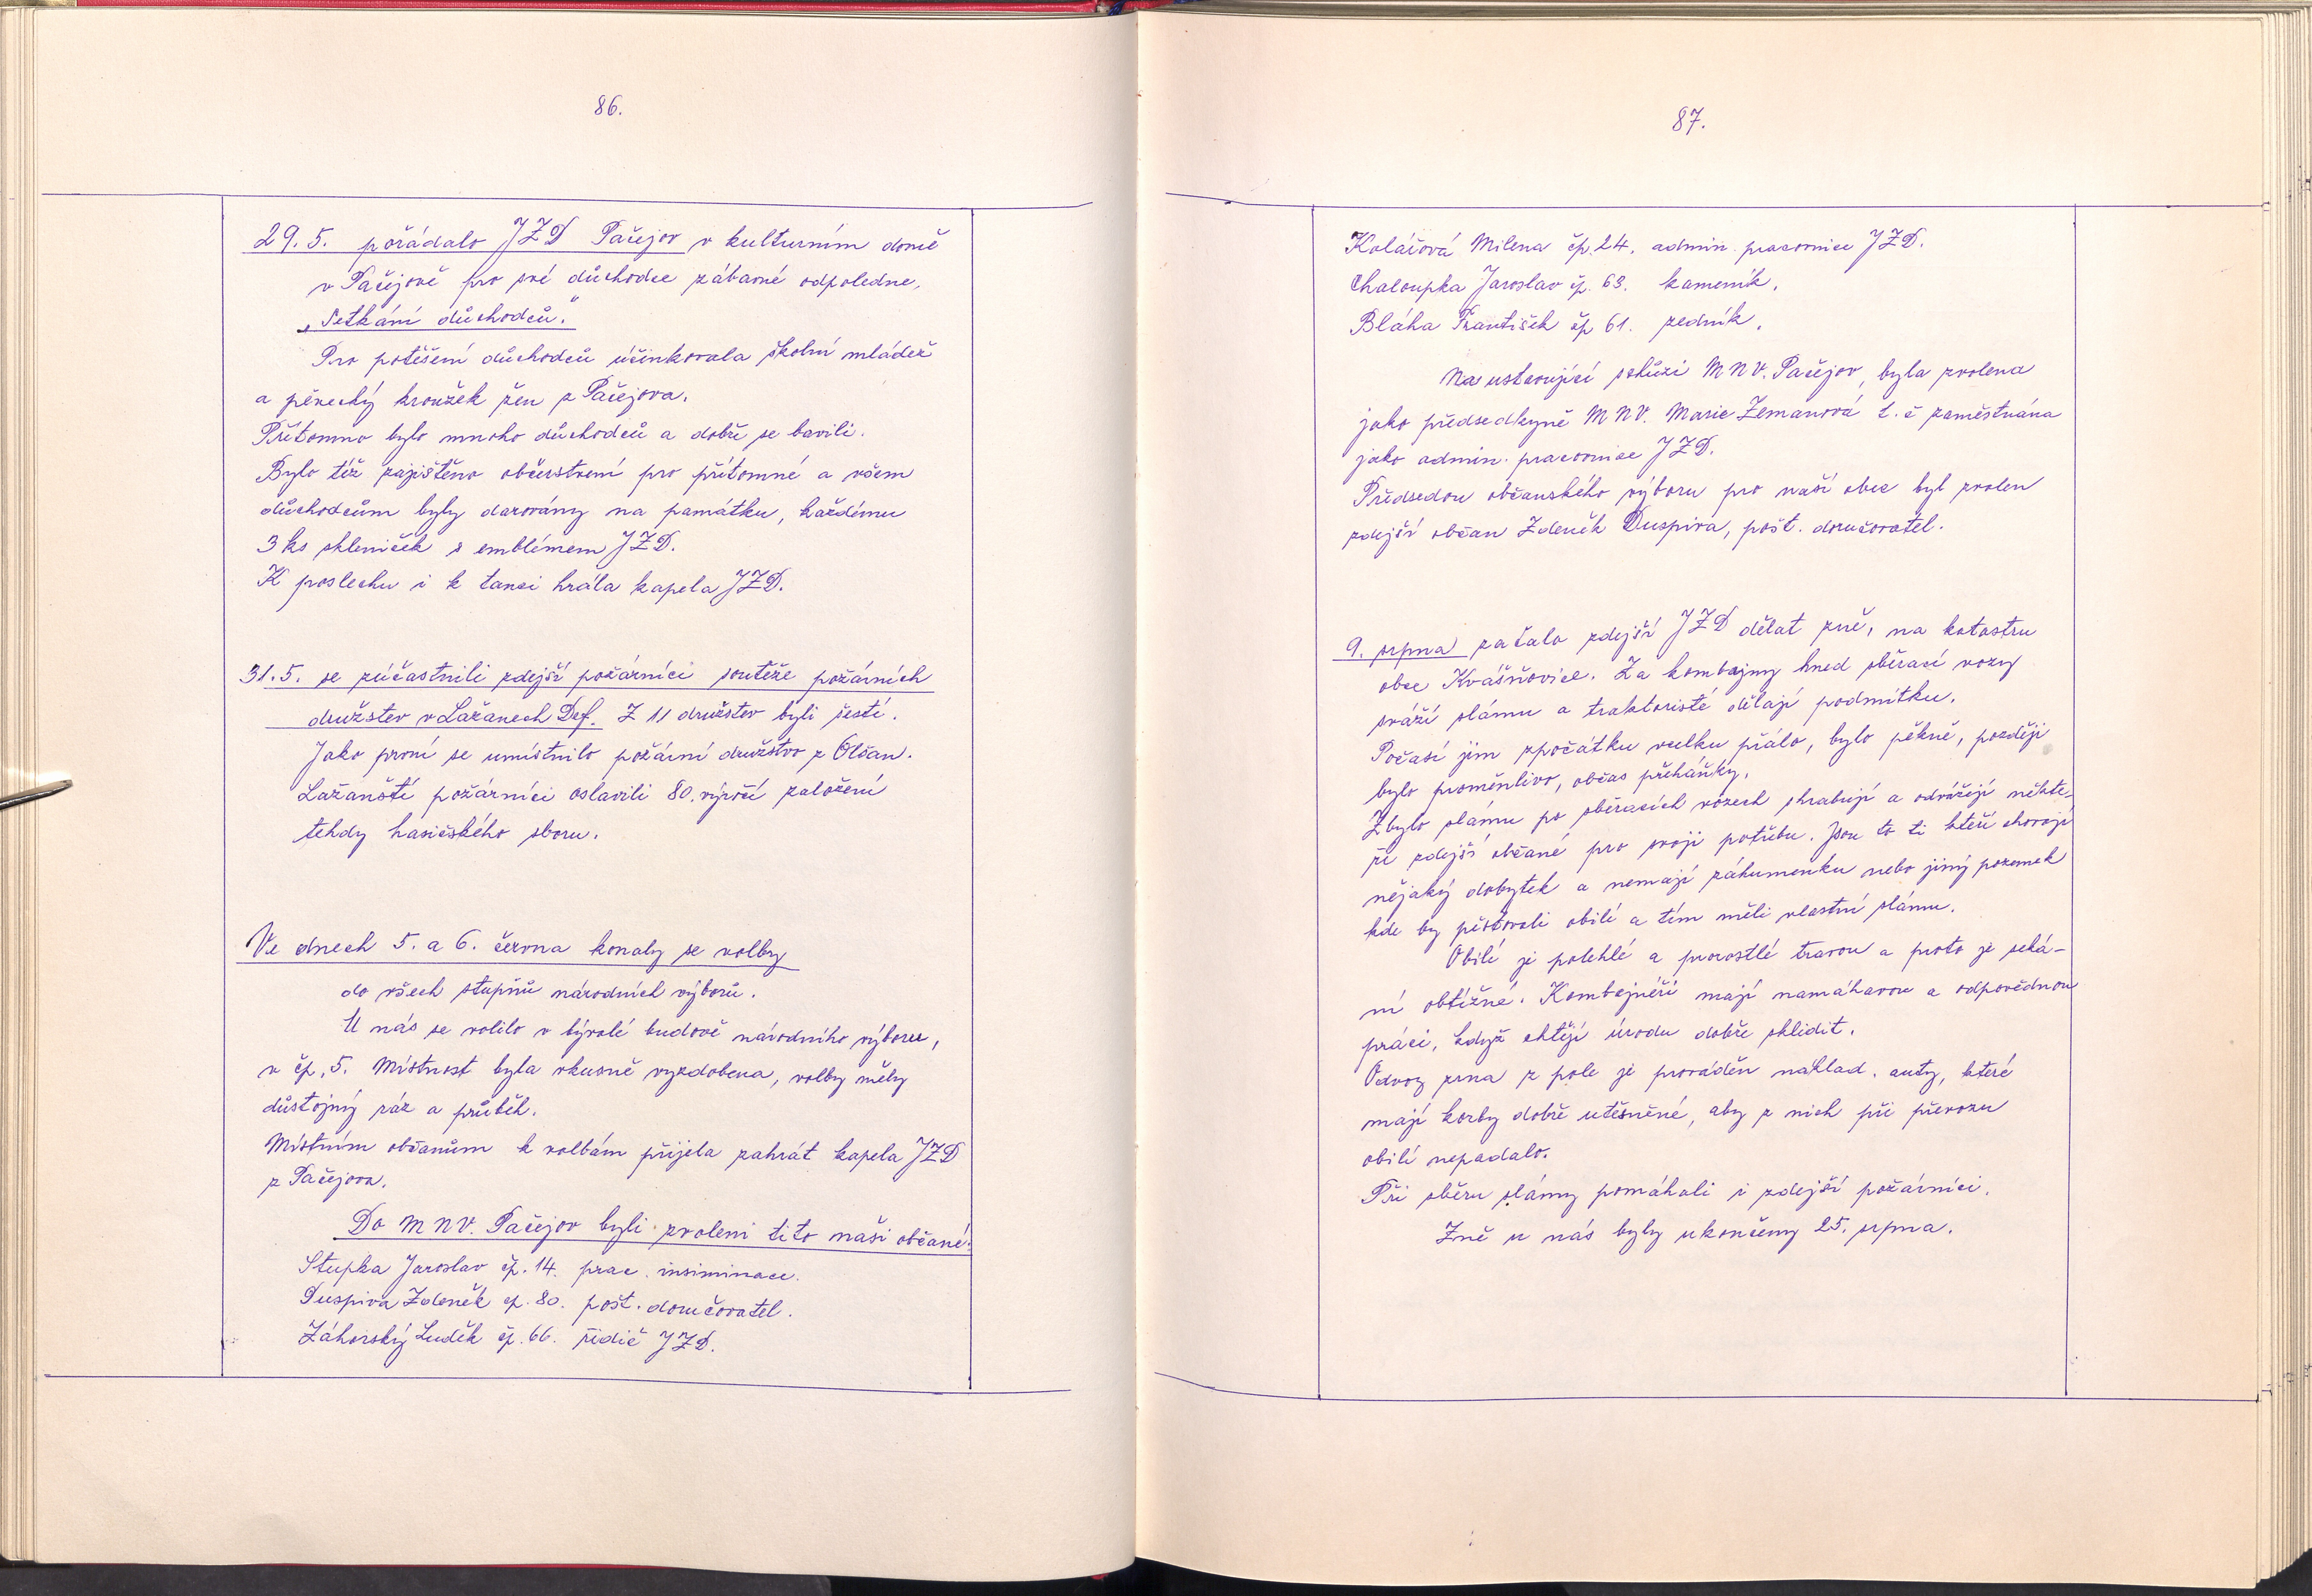 86.
29.5. pořádalo JZD Pačejov v kulturním domě
v Pačejově pro své důchodce zábavné odpoledne,
„Setkání důchodců."
Pro potěšení důchodců účinkovala školní mládež
a pěvecký kroužek žen z Pačejova.
Přítomno bylo mnoho důchodců a dobře se bavili.
Bylo též zajištěno občerstvení pro přítomné a všem
důchodcům byly darovány na památku, každému
3 ks skleniček s emblémem JZD.
K poslechu i k tanci hrála kapela JZD.
31.5. se zúčastnili zdejší požárníci soutěže požárních
družstev v Lažanech Def. Z 11 družstev byli šestí.
Jako první se umístnilo požární družstvo z Olšan.
Lažanští požárníci oslavili 80. výročí založení
tehdy hasičského sboru.
Ve dnech 5. a 6. června konaly se volby
do všech stupňů národních výborů.
U nás se volilo v bývalé budově národního výboru,
v čp. 5. Místnost byla vkusně vyzdobena, volby měly
důstojný ráz a průběh.
Místním občanům k volbám přijela zahrát kapela JZD
z Pačejova.
Do MNV. Pačejov byli zvoleni tito naši občané:
Stupka Jaroslav čp. 14. prac. insiminace.
Duspiva Zdeněk čp. 80. pošt. doručovatel.
Záhorský Luděk čp. 66. řidič JZD.
87.
Kolářová Milena čp. 24. admin. pracovnice JZD.
Chaloupka Jaroslav čp. 63. kameník.
Bláha František čp 61. zedník.
Na ustavující schůzi MNV. Pačejov, byla zvolena
jako předsedkyně MNV. Marie Zemanová t. č zaměstnána
jako admin. pracovnice JZD.
Předsedou občanského výboru pro naší obec byl zvolen
zdejší občan Zdeněk Duspiva, pošt. doručovatel.
9. srpna začalo zdejší JZD dělat žně, na katastru
obce Kvášňovice. Za kombajny hned sběrací vozy
sváží slámu a traktoristé dělají podmítku.
Počasí jim zpočátku vcelku přálo, bylo pěkně, později
bylo proměnlivo, občas přeháňky.
Zbylo slámu po sběracích vozech shrabují a odvážejí někte-
ří zdejší občané pro svoji potřebu. Jsou to ti kteří chovají
nějaký dobytek a nemají záhumenku nebo jiný pozemek
kde by pěstovali obilí a tím měli vlastní slámu.
Obilí je polehlé a prorostlé travou a proto je seká-
ní obtížné. Kombajnéři mají namáhavou a odpovědnou
práci, když chtějí úrodu dobře sklidit.
Odvoz zrna z pole je prováděn náklad. auty, které
mají korby dobře utěsněné, aby z nich při převozu
obilí nepadalo.
Při sběru slámy pomáhali i zdejší požárníci.
Žně u nás byly ukončeny 25. srpna.